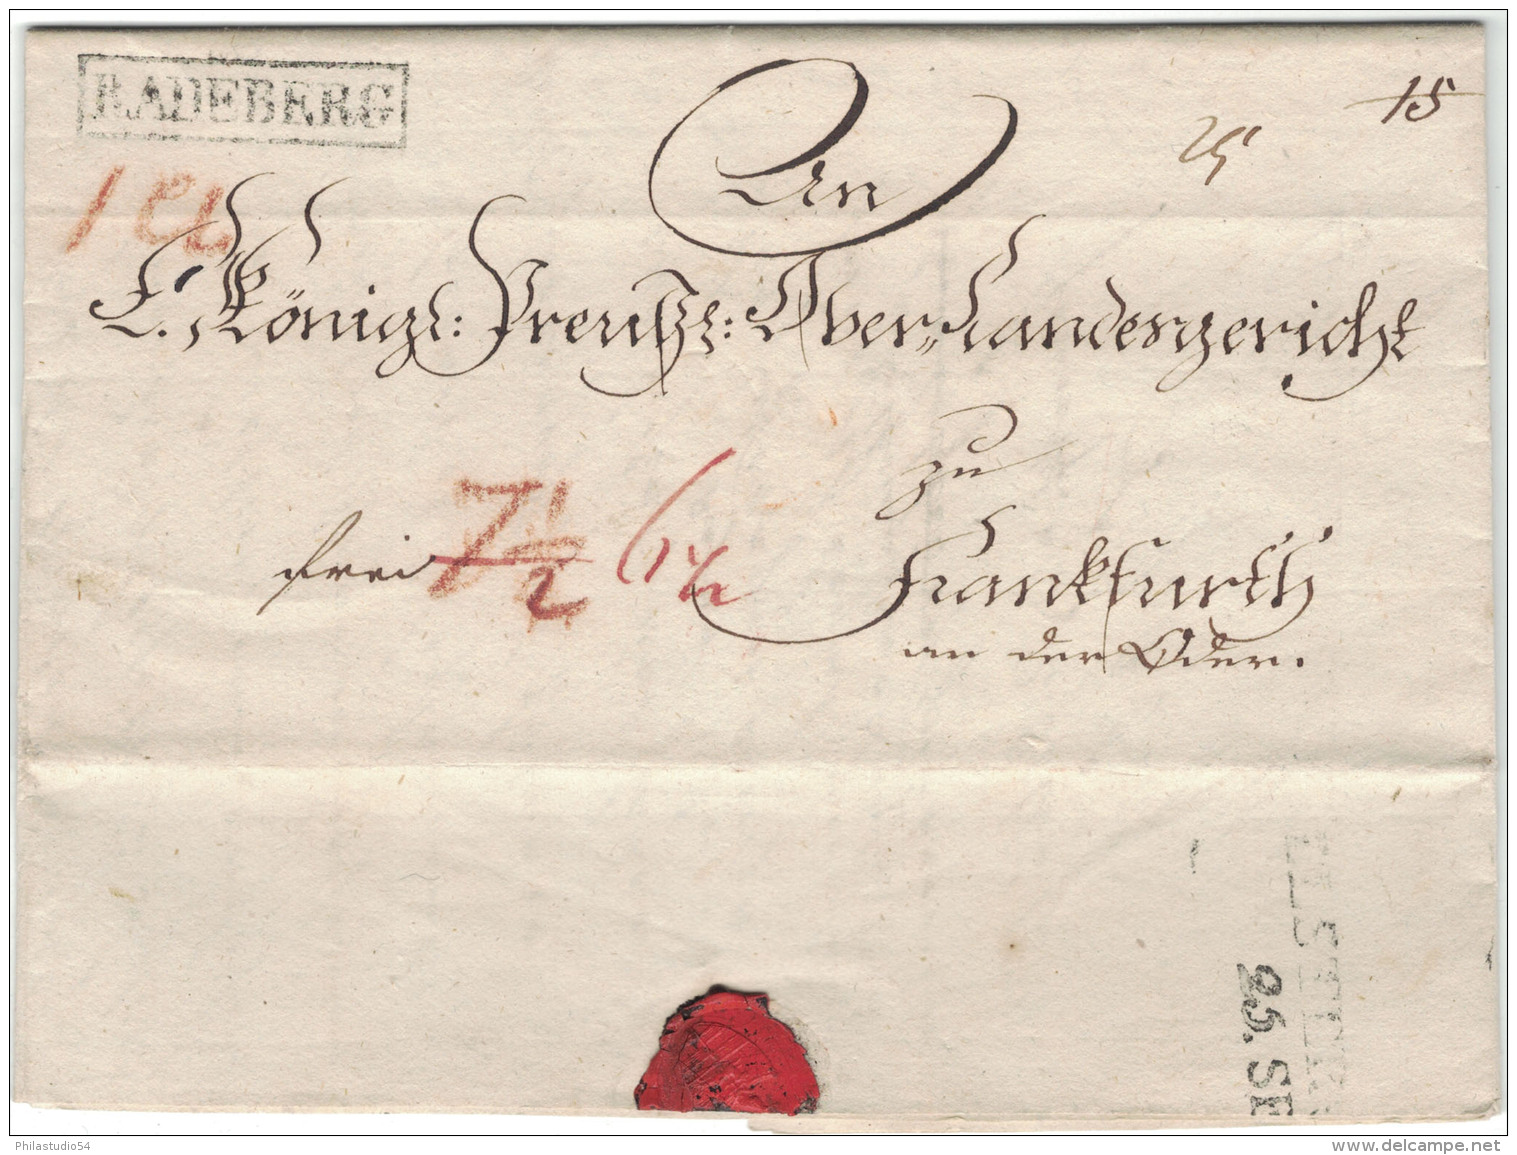 RADEBERG
15
An
E. Königl: Preußl: Ober-Landesgericht
zu
frei 7½
Frankfurth
an der Oder.
ELSTER
25. SE
Philastudio54
www.delcampe.net